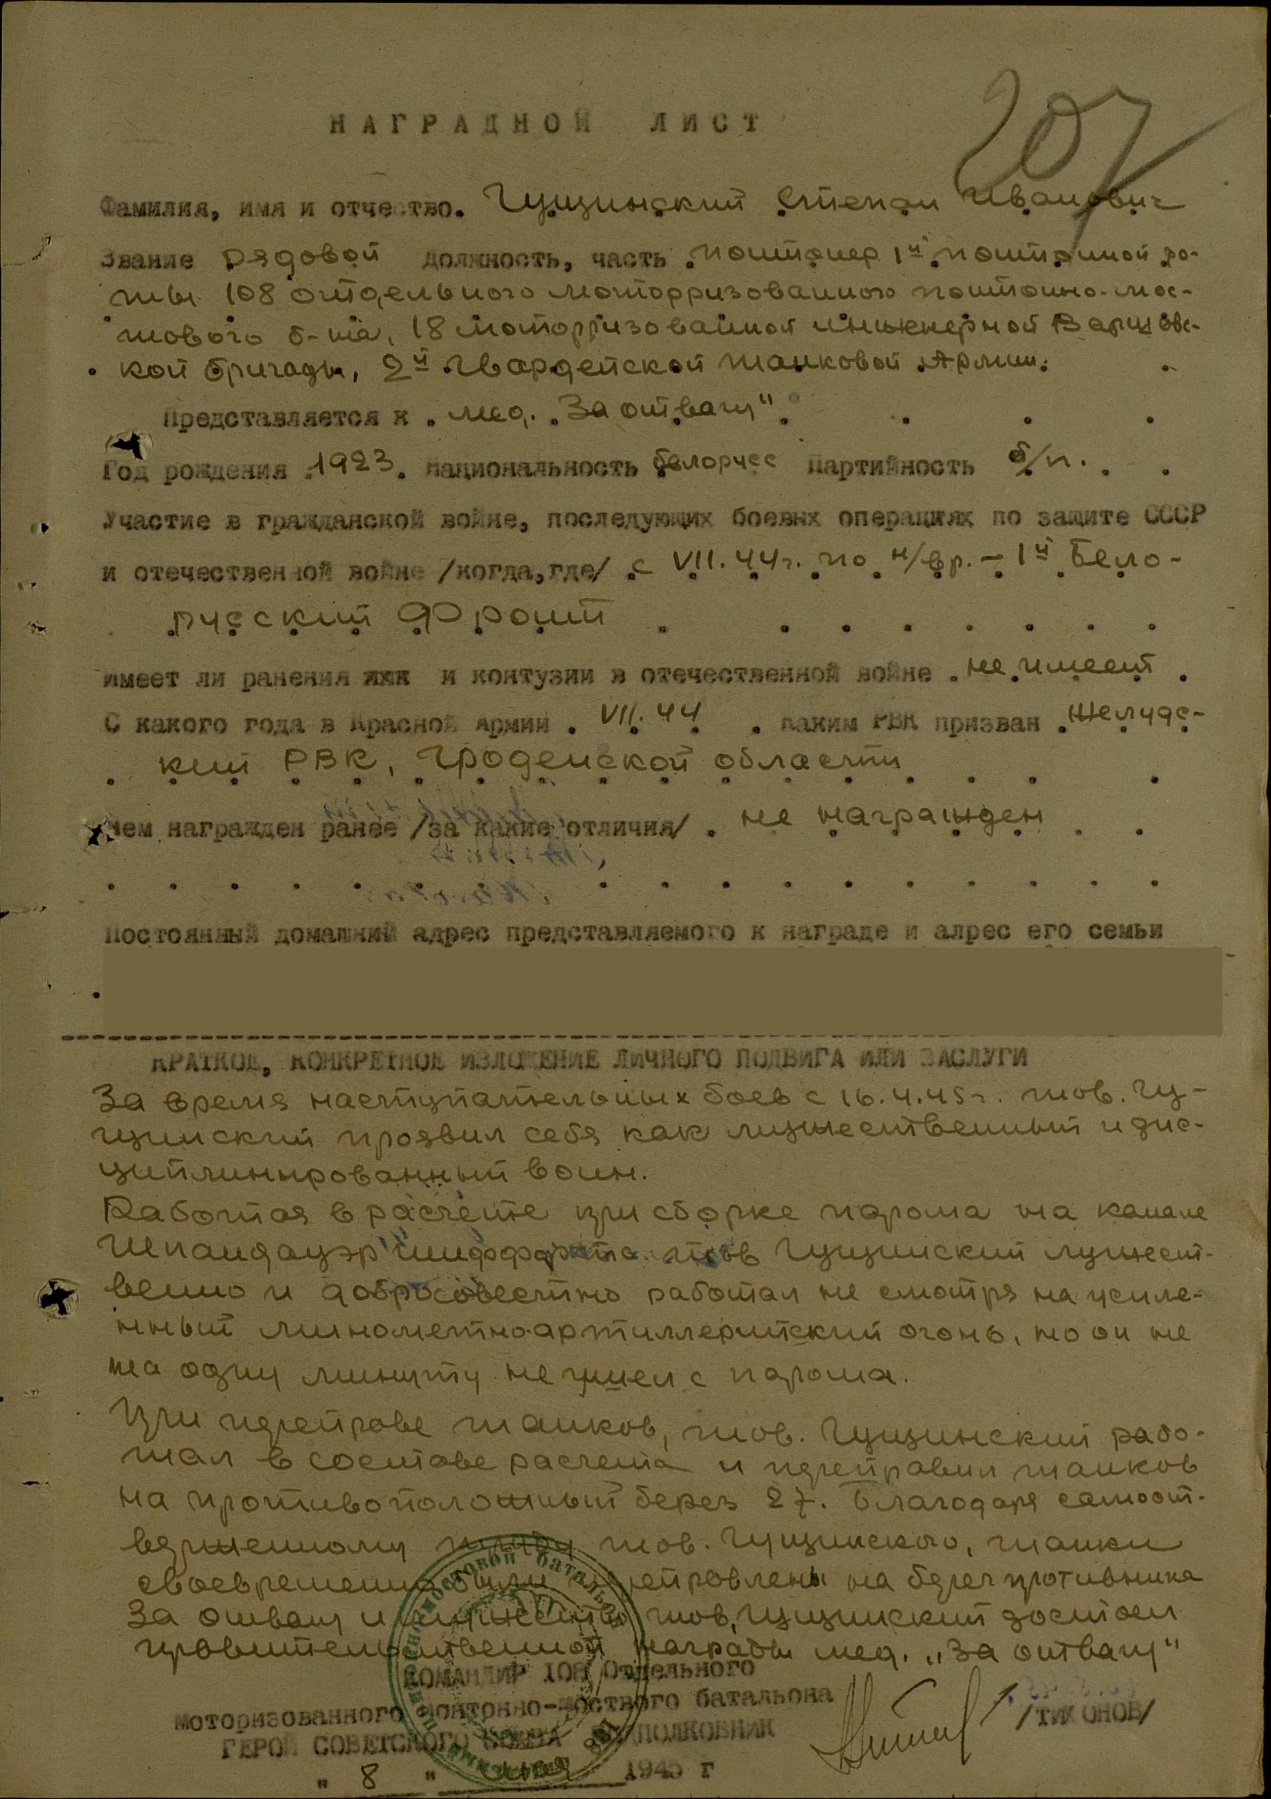 207
НАГРАДНОЙ ЛИСТ
Фамилия, имя и отчество. Гущинский Степан Иванович
Звание рядовой должность, часть понтонер 1й понтонной ро-
ты 108 отдельного моторризованного понтонно-мос-
тового б-на, 18 моторризованной инженерной Варшавс-
кой бригады, 2й Гвардейской танковой Армии.
Представляется к мед. "За отвагу"
Год рождения 1923. национальность белорусс Партийность б/п.
Участие в гражданской войне, последующих боевых операциях по защите СССР
и отечественной войне /когда,где/ с VII.44г. по н/вр. - 1й Бело-
русский Фронт
имеет ли ранения или и контузии в отечественной войне не имеет
С какого года в Красной Армии. VII.44. Каким РВК призван Желудс-
кий РВК, Гроденской области
Чем награжден ранее /за какие отличия/. не награжден
Постоянный домашний адрес представляемого к награде и алрес его семьи
КРАТКОЕ, КОНКРЕТНОЕ ИЗЛОЖЕНИЕ ЛИЧНОГО ПОДВИГА ИЛИ ЗАСЛУГИ
За время наступательных боев с 16.4.45г. тов. Гу-
щинский проявил себя как мужественный и дис-
циплинированный воин.
Работая в расчете при сборке парома на канале
Шпандауэр шиффартс тов Гущинский мужест-
венно и добросовестно работал не смотря на усиле-
нный минометно-артиллерийский огонь, но он не
на одну минуту не ушел с парома.
При переправе танков, тов. Гущинский рабо-
тал в составе расчета и переправил танков
на противоположный берег 27. Благодаря самоот-
верженному труду тов. Гущинского, танки
своевременно были переправлены на берег противника
За отвагу и мужество тов. Гущинский достоен
правительственной награды мед. "За отвагу"
КОМАНДИР 108 Отдельного
моторизованного понтонно-моствого батальона
ГЕРОЙ СОВЕТСКОГО СОЮЗА П/ПОЛКОВНИК /ТИХОНОВ/
" 8 " мая 1945 г